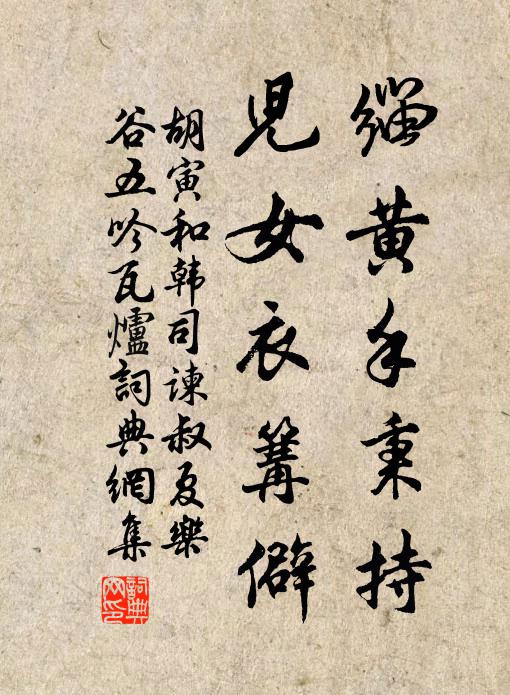 緇黄手秉持
兒女衣篝僻
胡寅和韓司諫叔夏樂
谷五吟瓦爐詞典網集